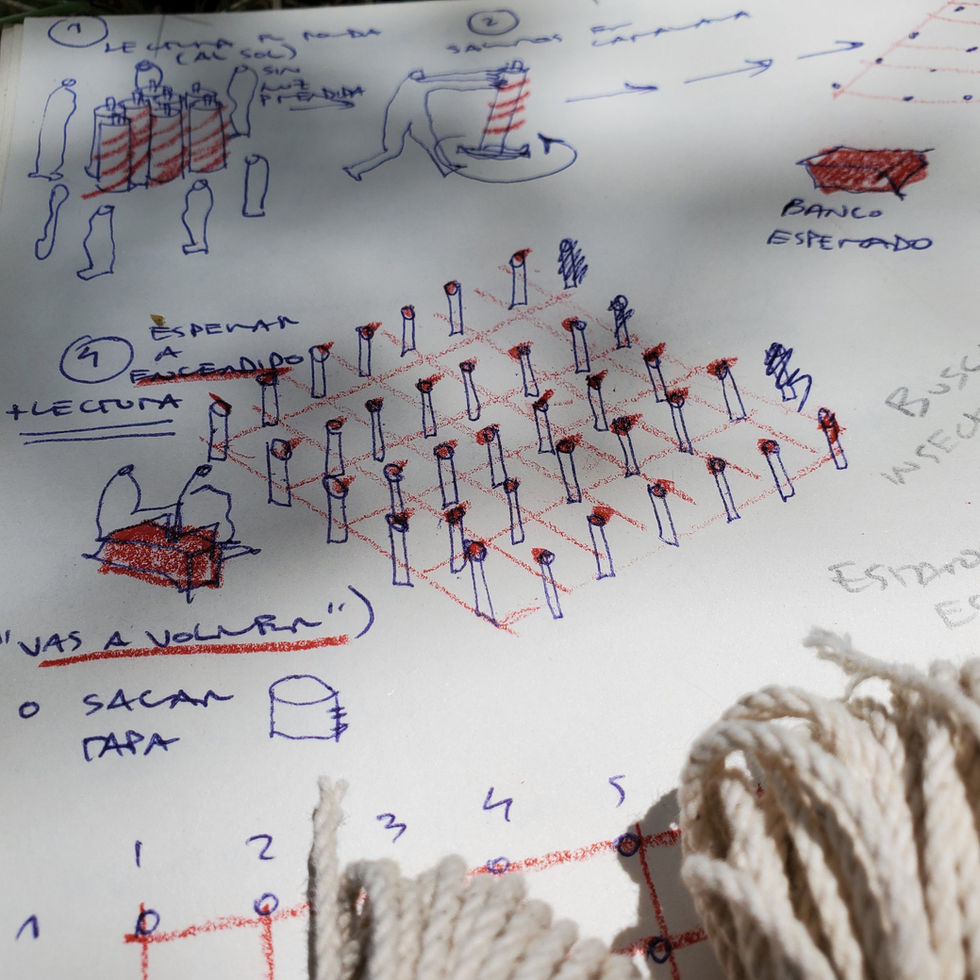 1
LECTURA EN RONDA
(AL SOL)
SIN
LUZ
PRENDIDA
2
SALIMOS EN CARAVANA
BANCO
ESPERADO
4
ESPERAR
A
ENCENDIDO
+LECTURA
"VAS A VOLVER")
O SACAR
TAPA
BUSC
1 2 3 4 5
1